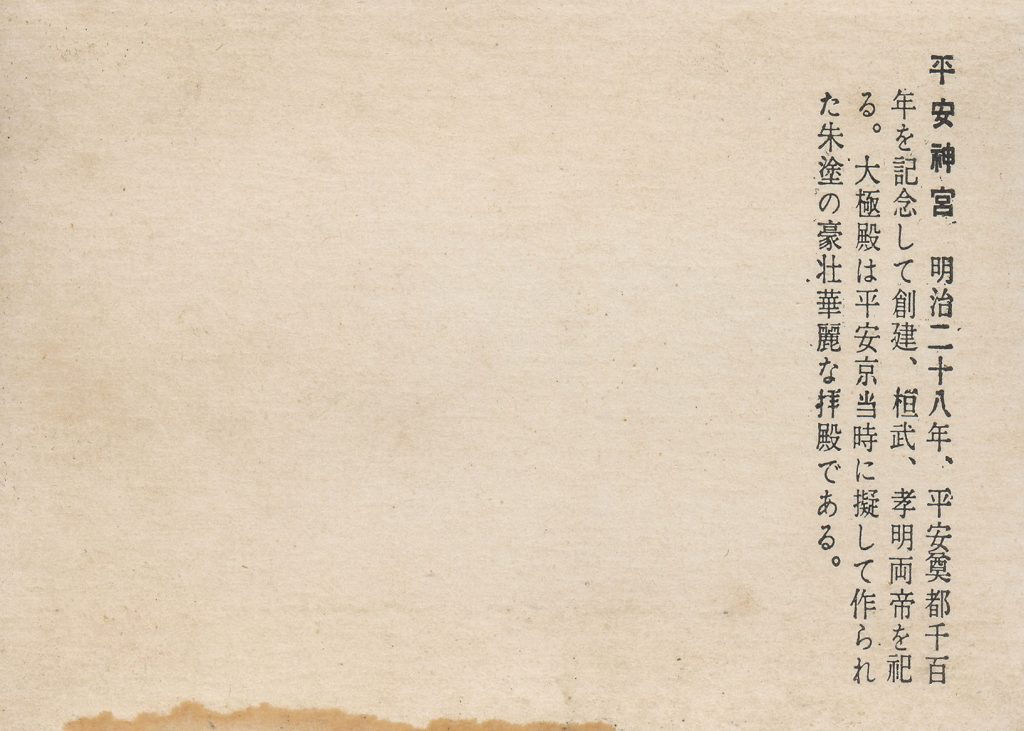 平安神宮　明治二十八年、平安奠都千百
年を記念して創建、桓武、孝明両帝を祀
る。大極殿は平安京当時に擬して作られ
た朱塗の豪壮華麗な拝殿である。